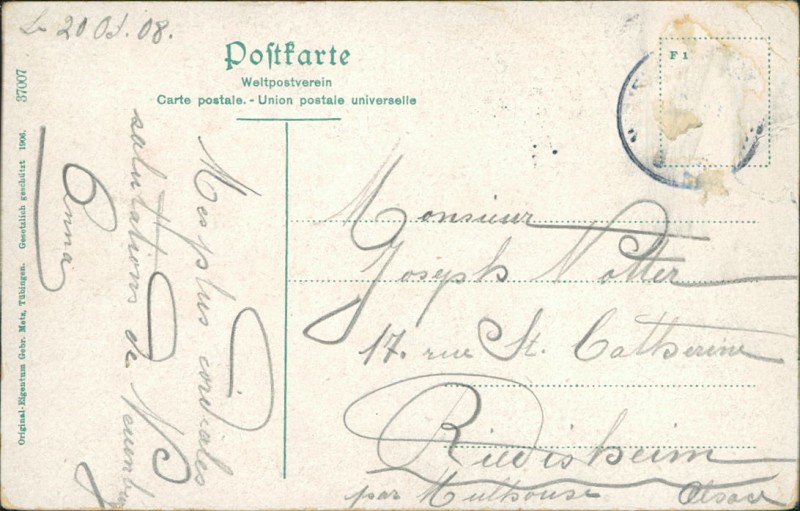 20 08.
Poſtkarte
Weltpostverein
Carte postale. - Union postale universelle
F 1
37007
Original-Eigentum Gebr. Metz, Tübingen. Gesetzlich geschützt 1906.
Mes plus cordiales
salutations de
Anna
Monsieur
Joseph Notter
17. rue St. Catherine
Riedisheim
par Mulhouse Alsace